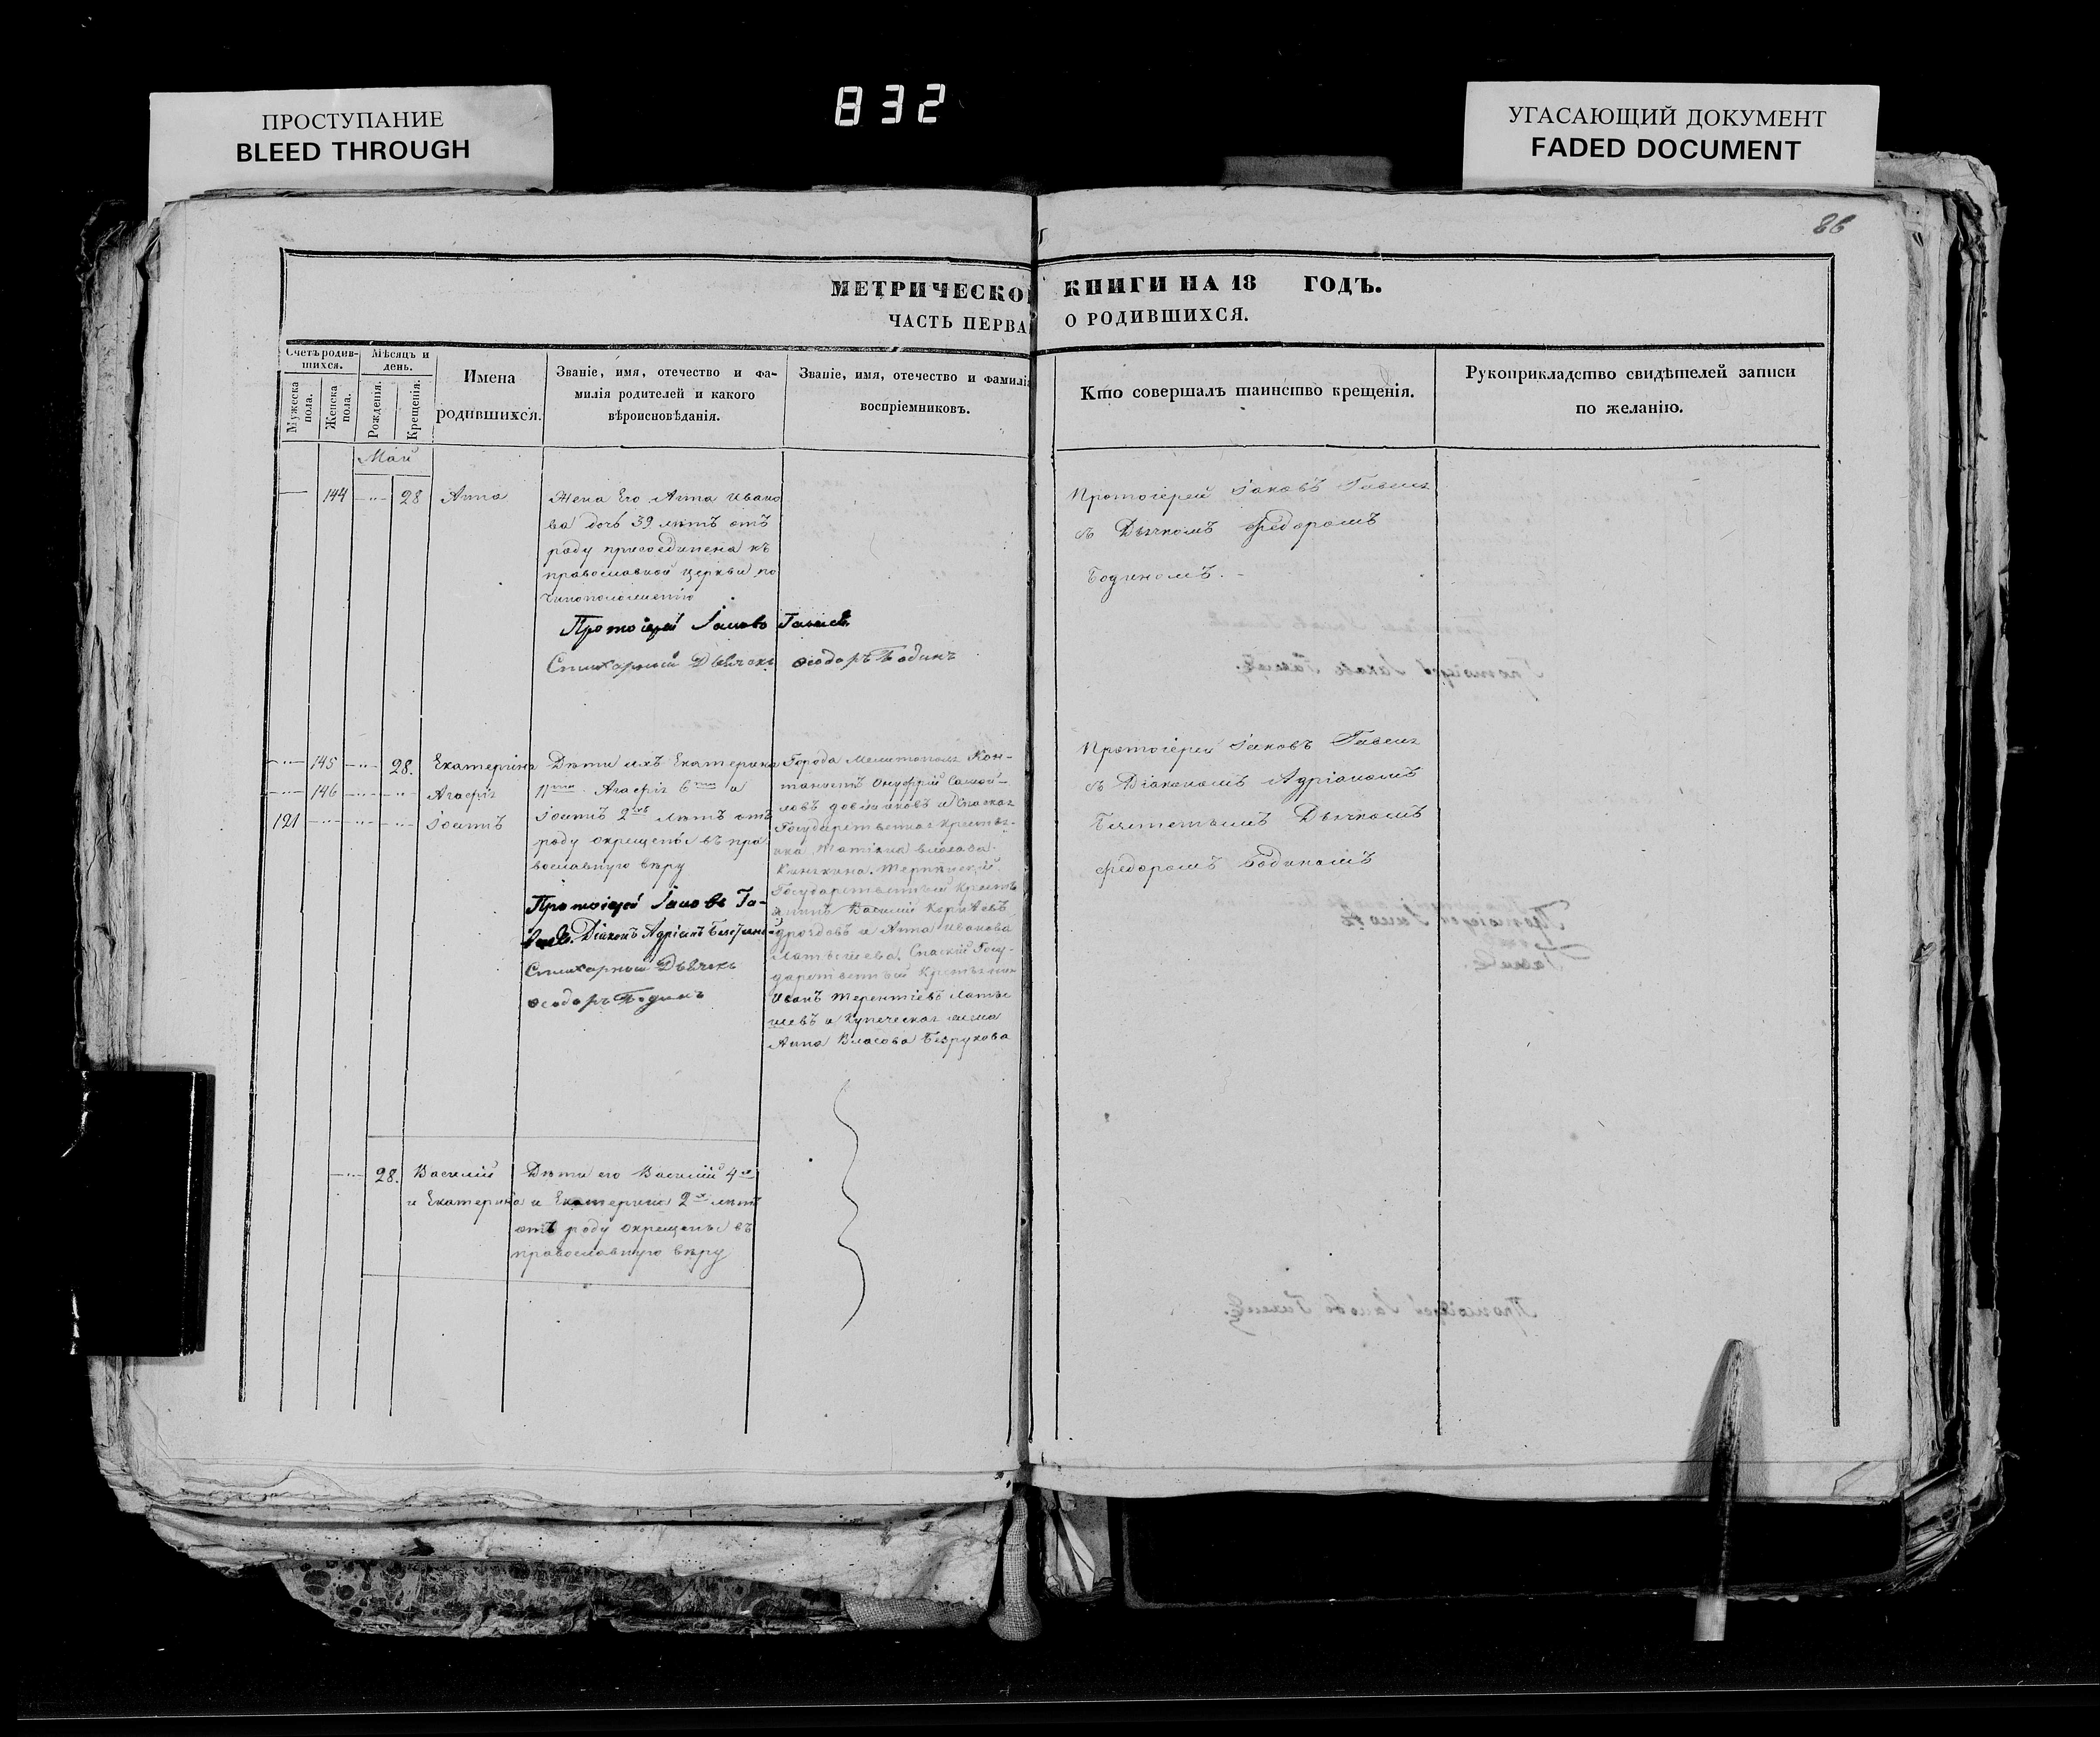 832
ПРОСТУПАНИЕ
BLEED THROUGH
УГАСАЮЩИЙ ДОКУМЕНТ
FADED DOCUMENT
86
МЕТРИЧЕСКОЙ КНИГИ НА 18 ГОДЪ.
ЧАСТЬ ПЕРВА О РОДИВШИХСЯ.
Счетъ родив-
шихся.
Мужеска
пола.
Женска
пола.
Мѣсяцъ и
день.
Рожденія.
Крещенія.
Имена
родившихся.
Званіе, имя, отечество и фа-
милія родителей и какого
вѣроисповѣданія.
Званіе, имя, отечество и фамилія
воспріемниковъ.
Кто совершалъ таинство крещенія.
Рукоприкладство свидѣтелей записи
по желанію.
Май
144 28 Анна
Жена Его Анна Ивано
ва дочь 39 лѣтъ отъ
роду присоединена къ
православной церкви по
чиноположенію
Протоіерей Іаковъ Гавевъ
Стихарный Дьячекъ Ѳеодоръ Бодинъ
Протоіерей Іаковъ
съ Дьячкомъ Федоромъ
Бодиномъ.
145 28. Екатерина
146 Агафія
121 Іоаннъ
Дѣти ихъ Екатерина
11 Агафія 6 и
Іоаннъ 2хъ лѣтъ отъ
роду окрещены въ пра
вославную вѣру
Протоіерей Іаковъ Га-
Діаконъ Адріанъ
Стихарный Дьячекъ
Ѳеодоръ Бодинъ
Города Мелитополя
Онуфрій Самой-
ловъ и Спаская
Государственная крестья-
нка Власова
Государственный крестья
нинъ Василій
Дроздовъ и Анна Иванова
Латышева, Спаскій Госу-
дарственный Крестьянин
Иванъ Терентіевъ Латы
шевъ и Купеческая жена
Анна Власова Безрукова
Протоіерей Іаковъ
съ Діакономъ Адріаномъ
Дьячкомъ
Федоромъ Бодиномъ
28. Василій
и Екатерина
Дѣти его Василій 4х
и Екатерина 2х лѣтъ
отъ роду окрещены въ
православную вѣру